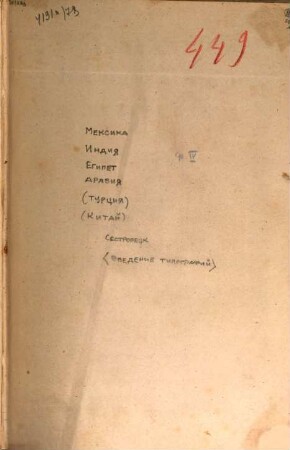 449
Мексика
Индия
ч. IV
Египет
Аравия
(Турция)
(Китай)
Сестрорецк
(Введение типографий)